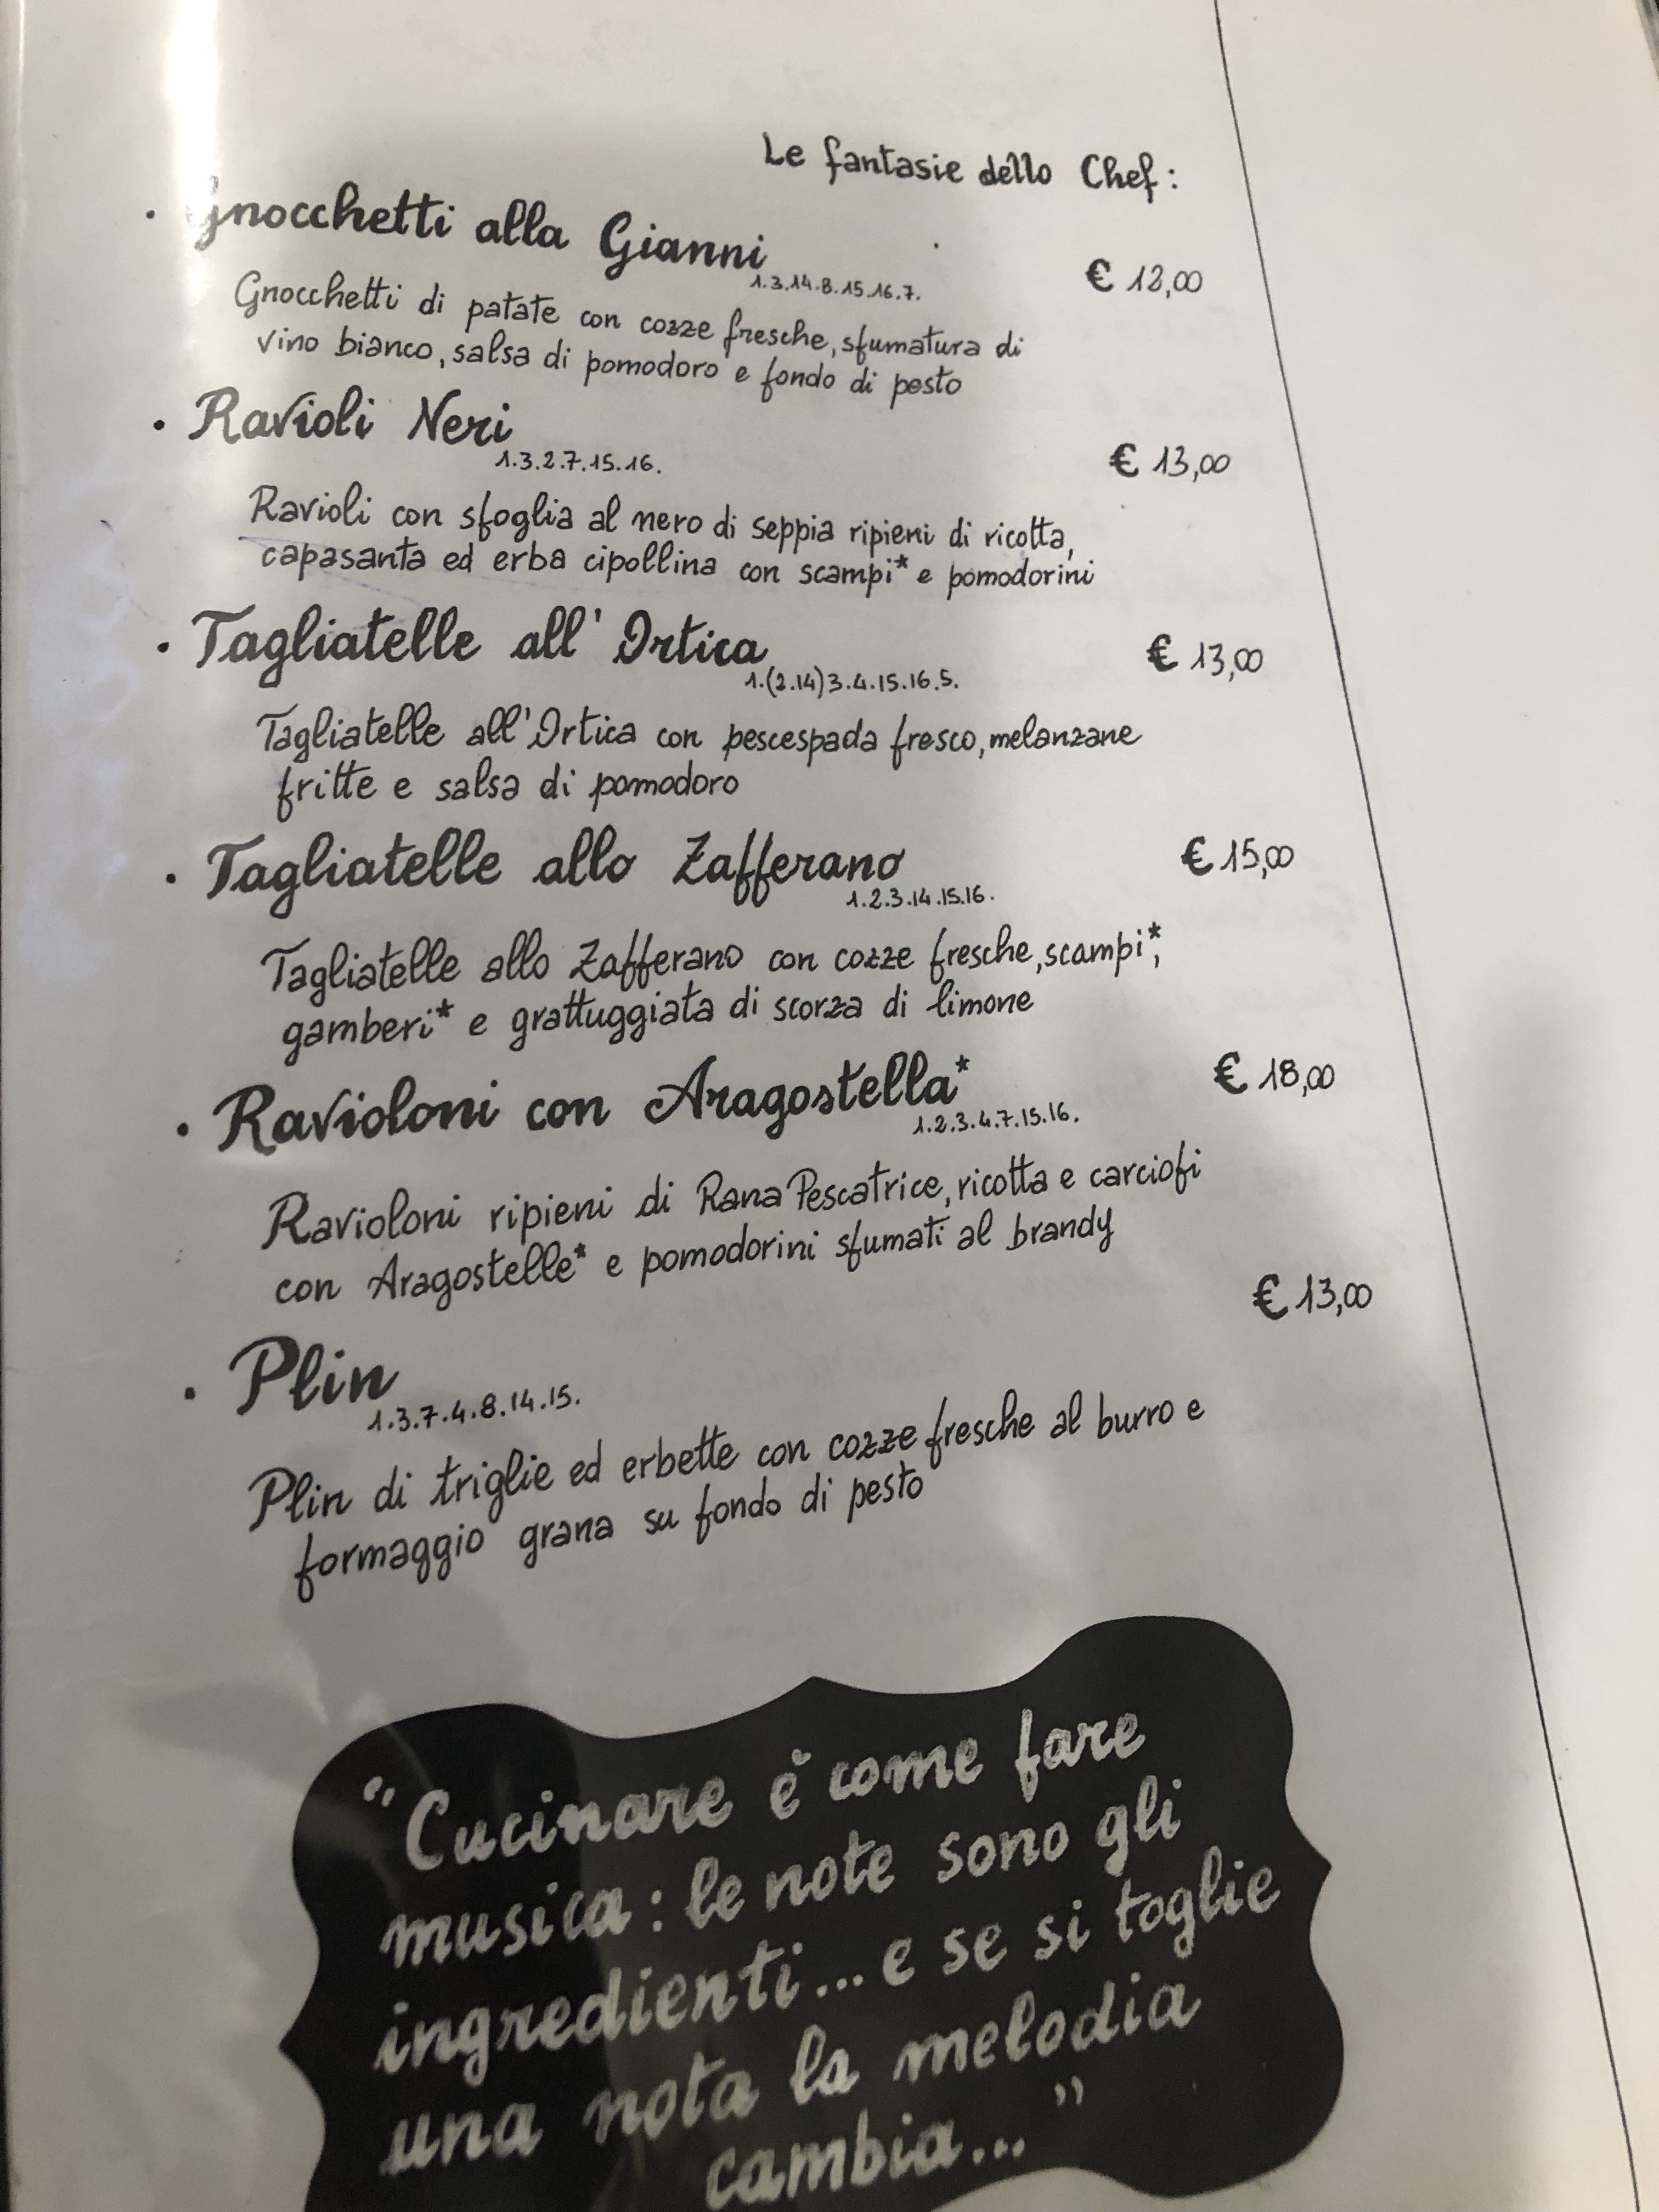 Le fantasie dello Chef:
• Gnocchetti alla Gianni
1.3.14.8.15.16.7.
€ 12,00
Gnocchetti di patate con cozze fresche, sfumatura di
vino bianco, salsa di pomodoro e fondo di pesto
• Ravioli Neri
1.3.2.7.15.16.
€ 13,00
Ravioli con sfoglia al nero di seppia ripieni di ricotta,
capasanta ed erba cipollina con scampi* e pomodorini
• Tagliatelle all'Ortica
1.(2.14)3.4.15.16.5.
€ 13,00
Tagliatelle all'Ortica con pescespada fresco, melanzane
fritte e salsa di pomodoro
• Tagliatelle allo Zafferano
1.2.3.14.15.16.
€ 15,00
Tagliatelle allo Zafferano con cozze fresche, scampi*,
gamberi* e grattuggiata di scorza di limone
• Ravioloni con Aragostella*
1.2.3.4.7.15.16.
€ 18,00
Ravioloni ripieni di Rana Pescatrice, ricotta e carciofi
con Aragostelle* e pomodorini sfumati al brandy
€ 13,00
• Plin
1.3.7.4.8.14.15.
Plin di triglie ed erbette con cozze fresche al burro e
formaggio grana su fondo di pesto
“Cucinare è come fare
musica: le note sono gli
ingredienti... e se si toglie
una nota la melodia
cambia...”